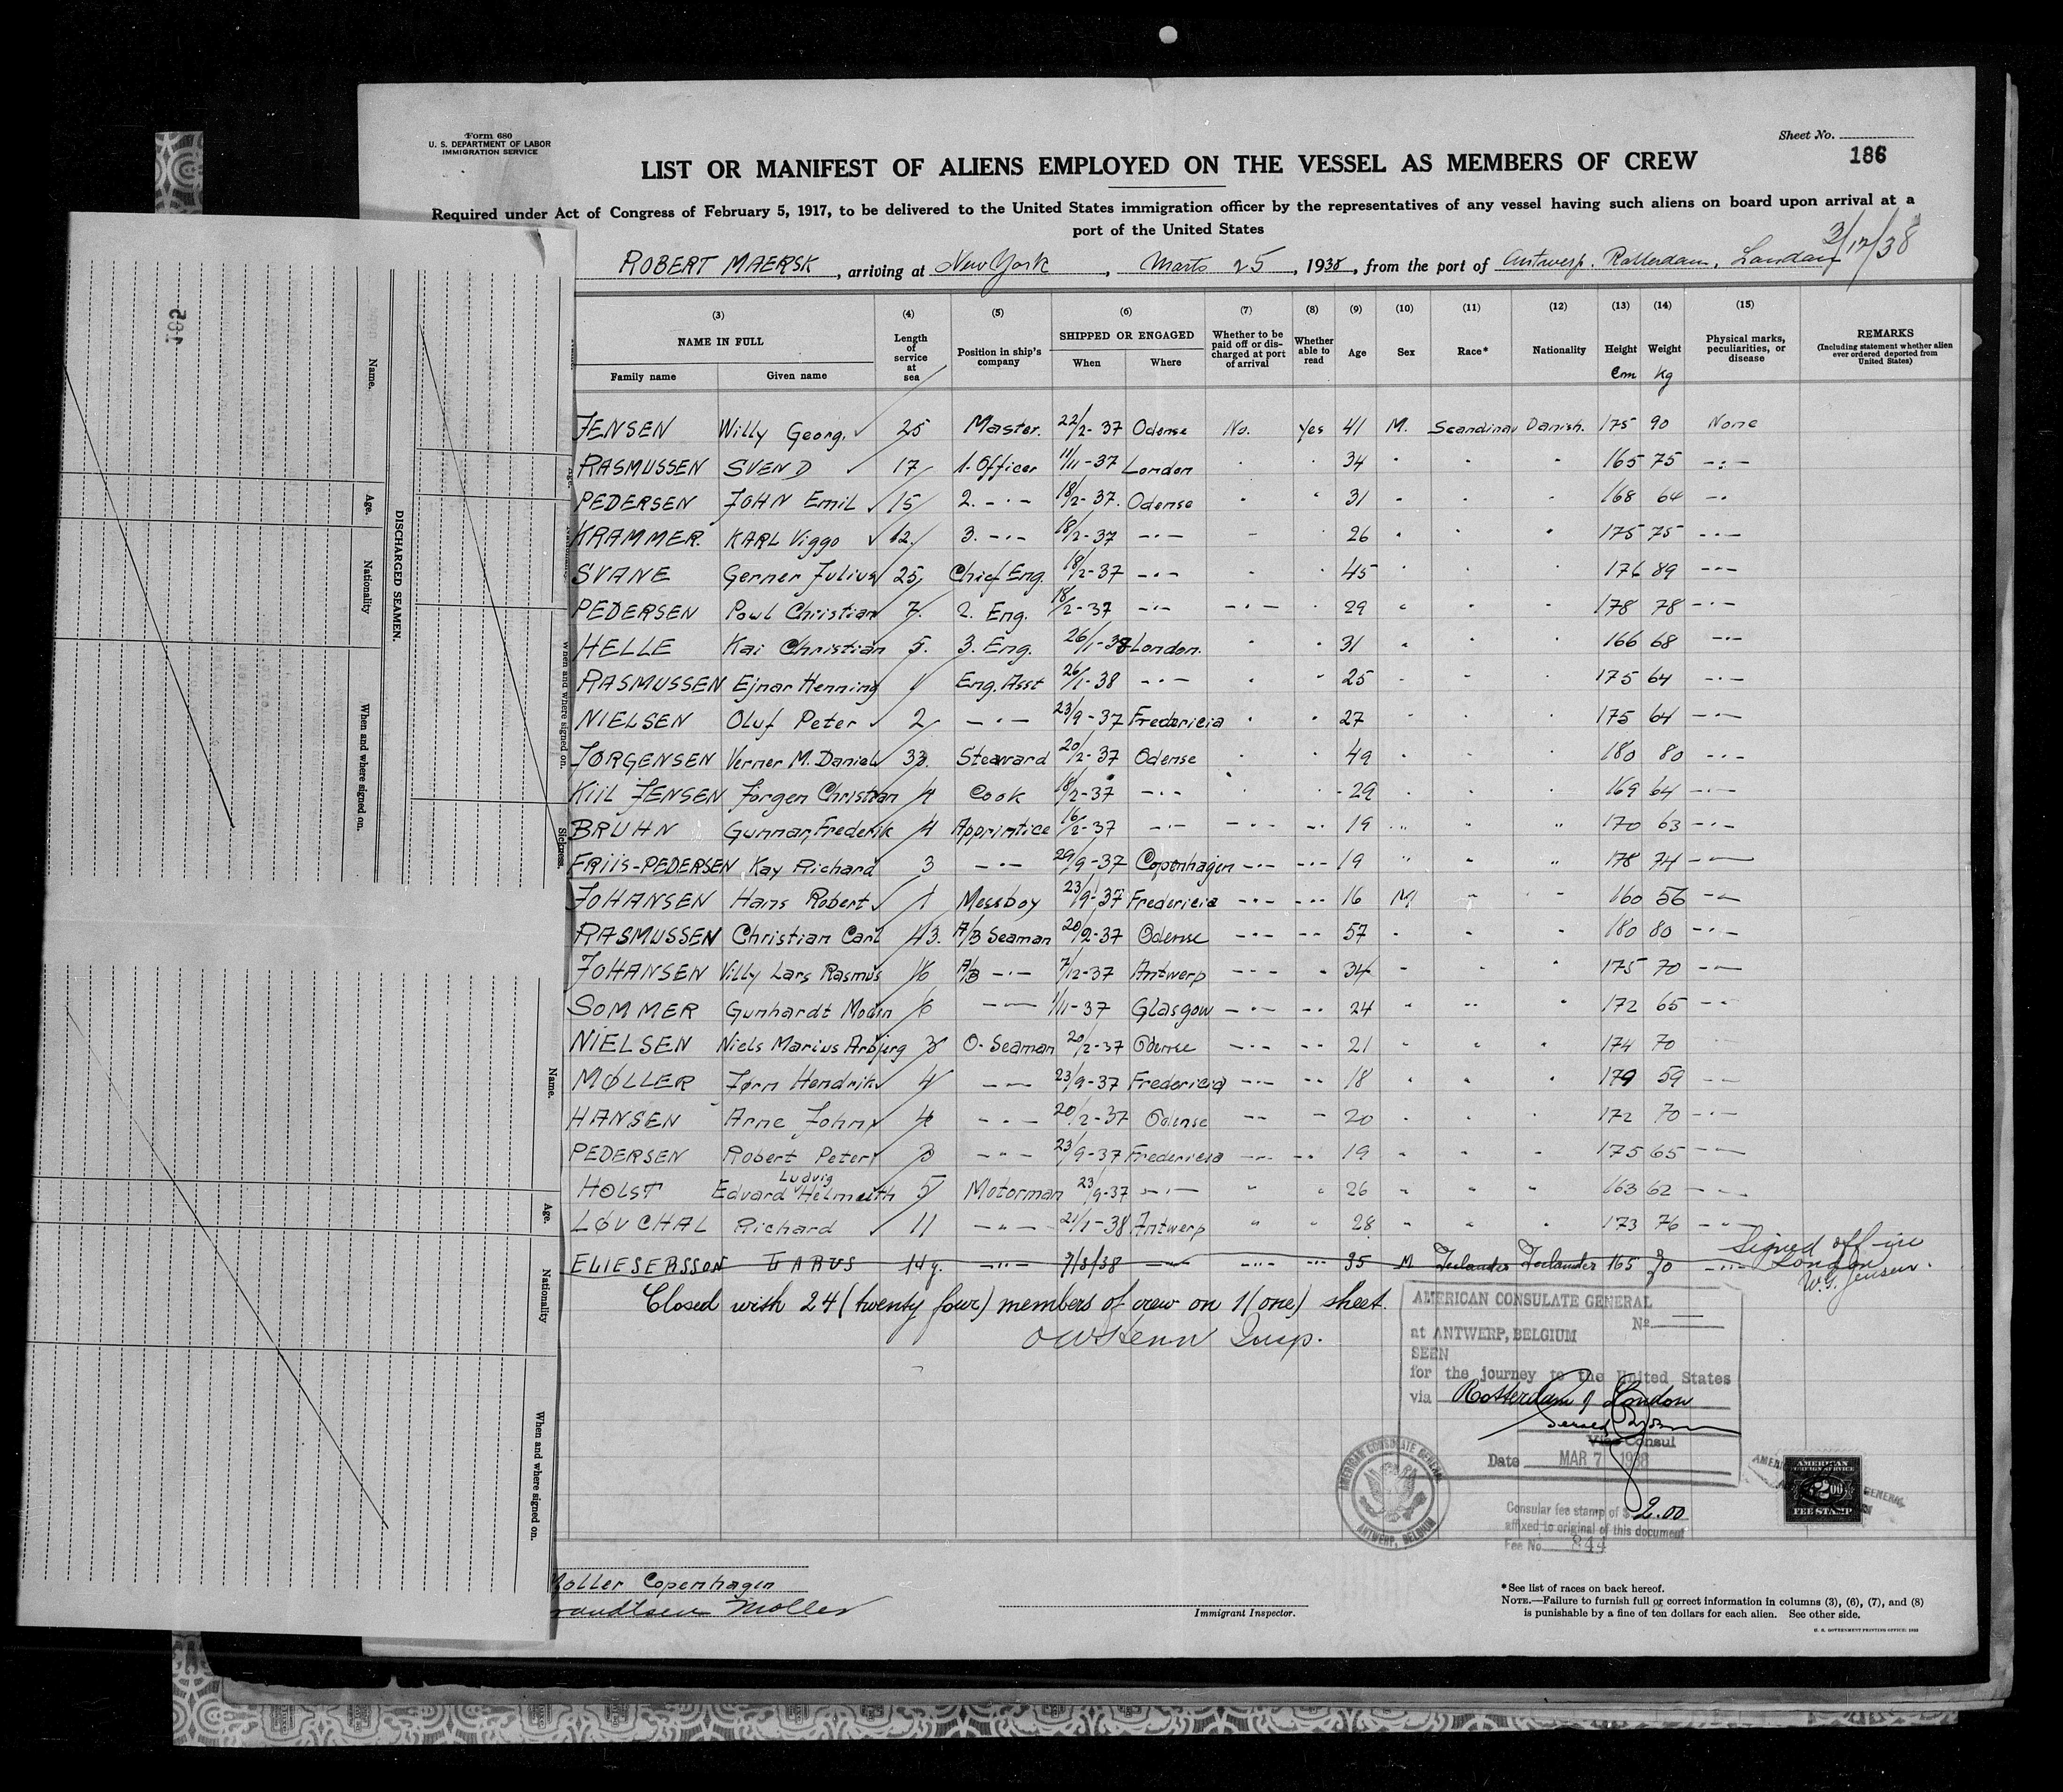 Form 680
U. S. DEPARTMENT OF LABOR
IMMIGRATION SERVICE
Sheet No.
186
LIST OR MANIFEST OF ALIENS EMPLOYED ON THE VESSEL AS MEMBERS OF CREW
Required under Act of Congress of February 5, 1917, to be delivered to the United States immigration officer by the representatives of any vessel having such aliens on board upon arrival at a
port of the United States
3/17/38
ROBERT MAERSK, arriving at New York, Marts 25, 1938, from the port of Antwerp. Rotterdam. London
(3) (4) (5) (6) (7) (8) (9) (10) (11) (12) (13) (14) (15)
NAME IN FULL Length of service at sea Position in ship's company SHIPPED OR ENGAGED Whether to be paid off or discharged at port of arrival Whether able to read Age Sex Race* Nationality Height Weight Physical marks, peculiarities, or disease REMARKS (Including statement whether alien ever ordered deported from United States)
Family name Given name When Where Cm Kg
JENSEN Willy Georg. 25 Master. 22/2-37 Odense No. Yes 41 M. Scandinav Danish. 175 90 None
RASMUSSEN SVEND 17 1. Officer 11/11-37 London 34 165 75 -:-
PEDERSEN JOHN Emil 15 2. -·- 18/2-37. Odense 31 168 64 -·
KRAMMER. KARL Viggo 12. 3. -·- 18/2-37 -·- 26 175 75 -·-
SVANE Gerner Julius 25 Chief Eng. 18/2-37 -·- 45 176 89 -·-
PEDERSEN Powl Christian 7. 2. Eng. 18/2-37 -·- -·- 29 178 78 -·-
HELLE Kai Christian 5. 3. Eng. 26/1-38 London. 31 166 68 -·-
RASMUSSEN Ejnar Henning 1 Eng. Asst 26/1-38 -·- 25 175 64 -·-
NIELSEN Oluf Peter 2 -·- 23/9-37 Fredericia 27 175 64 -·-
JØRGENSEN Verner M. Daniel 33. Steward 20/2-37 Odense 49 180 80 -·-
KIIL JENSEN Jørgen Christian 4 Cook 18/2-37 -·- 29 169 64 -·-
BRUHN Gunnar, Frederik 4 Apprintice 16/2-37 -·- -·- -·- 19 " " " 170 63 -·-
FRIIS-PEDERSEN Kay Richard 3 -·- 29/9-37 Copenhagen -·- -·- 19 " " " 178 74 -·-
JOHANSEN Hans Robert 1 Messboy 23/9-37 Fredericia -·- -·- 16 M " " 160 56 -·-
RASMUSSEN Christian Carl 43. A/B Seaman 20/2-37 Odense -·- -- 57 180 80 -·-
JOHANSEN Villy Lars Rasmus 16 A/B -·- 7/12-37 Antwerp -·- 34 175 70 -·-
SOMMER Gunhardt 6 -·- 1/11-37 Glasgow -·- -- 24 172 65 -·-
NIELSEN Niels Marius Arbjerg 3 O. Seaman 20/2-37 Odense -·- -- 21 174 70
MØLLER Jørn Hendrik 4 -·- 23/9-37 Fredericia -·- -- 18 179 59 --
HANSEN Arne John 4 -·- 20/2-37 Odense -- - 20 172 70 -·-
PEDERSEN Robert Peter 3 -·- 23/9-37 Fredericia -·- -- 19 175 65 -·-
HOLST Edvard Ludvig Helmuth 5 Motorman 23/9-37 -·- 26 163 62 -·-
LØVCHAL Richard 11 -"- 21/1-38 Antwerp " " 28 173 76 -"-
ELIESERSSON LARUS 14 y. -"- 7/3/38 -"- -"- -"- 35 M Icelander Icelander 165 70 -"- Signed off in London W.G. Jensen.
Closed with 24 (twenty four) members of crew on 1 (one) sheet.
Insp.
AMERICAN CONSULATE GENERAL
No
at ANTWERP, BELGIUM
SEEN
for the journey to the United States
via Rotterdam & London
Vice Consul
Date MAR 7 1938
AMERICAN CONSULATE GENERAL
ANTWERP, BELGIUM
Consular fee stamp of $ 2.00
affixed to original of this document
Fee No. 844
AMERICAN
FOREIGN SERVICE
2.00
FEE STAMP
Møller Copenhagen
Moller
Immigrant Inspector.
*See list of races on back hereof.
NOTE.—Failure to furnish full or correct information in columns (3), (6), (7), and (8)
is punishable by a fine of ten dollars for each alien. See other side.
185
DISCHARGED SEAMEN.
Name.
Age.
Nationality
When and where signed on.
When and where signed on.
Sickness.
Name.
Age.
Nationality
When and where signed on.